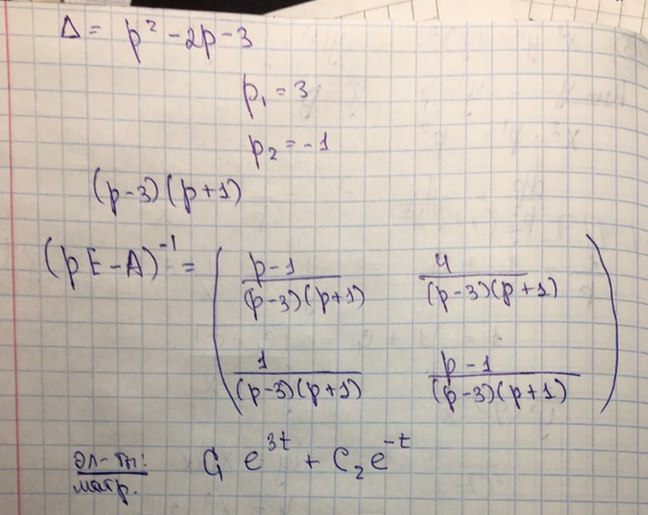 Δ = p² - 2p - 3
p₁ = 3
p₂ = -1
(p-3)(p+1)
(pE-A)⁻¹ = ( (p-1)/((p-3)(p+1)) 4/((p-3)(p+1))
1/((p-3)(p+1)) (p-1)/((p-3)(p+1)) )
эл-ты: C₁ e³ᵗ + C₂ e⁻ᵗ
матр.